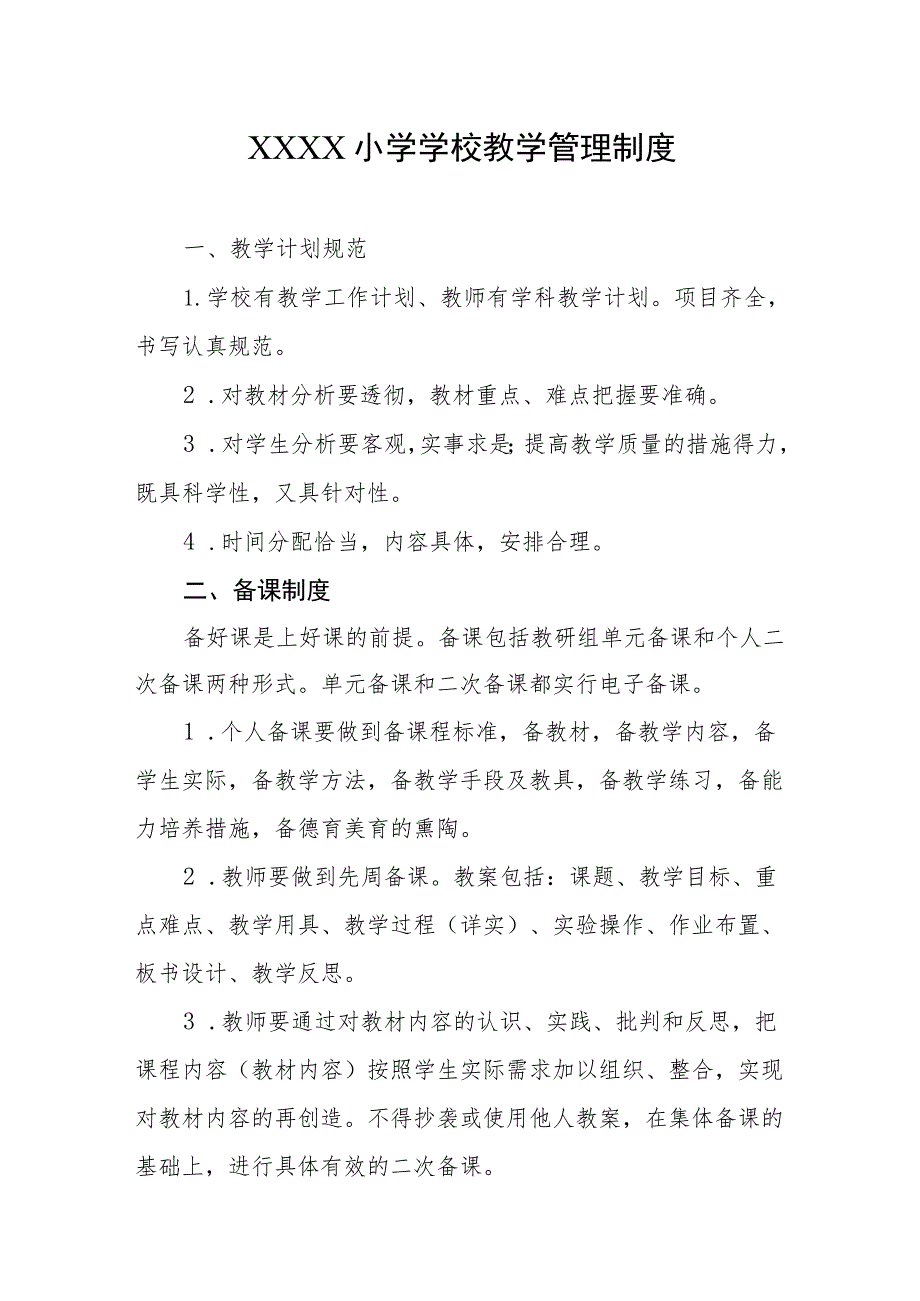 XXXX 小学学校教学管理制度
一、教学计划规范
1. 学校有教学工作计划、教师有学科教学计划。项目齐全，
书写认真规范。
2 . 对教材分析要透彻，教材重点、难点把握要准确。
3 . 对学生分析要客观，实事求是；提高教学质量的措施得力，
既具科学性，又具针对性。
4 . 时间分配恰当，内容具体，安排合理。
二、备课制度
备好课是上好课的前提。备课包括教研组单元备课和个人二
次备课两种形式。单元备课和二次备课都实行电子备课。
1 . 个人备课要做到备课程标准，备教材，备教学内容，备
学生实际，备教学方法，备教学手段及教具，备教学练习，备能
力培养措施，备德育美育的熏陶。
2 . 教师要做到先周备课。教案包括：课题、教学目标、重
点难点、教学用具、教学过程（详实）、实验操作、作业布置、
板书设计、教学反思。
3 . 教师要通过对教材内容的认识、实践、批判和反思，把
课程内容（教材内容）按照学生实际需求加以组织、整合，实现
对教材内容的再创造。不得抄袭或使用他人教案，在集体备课的
基础上，进行具体有效的二次备课。